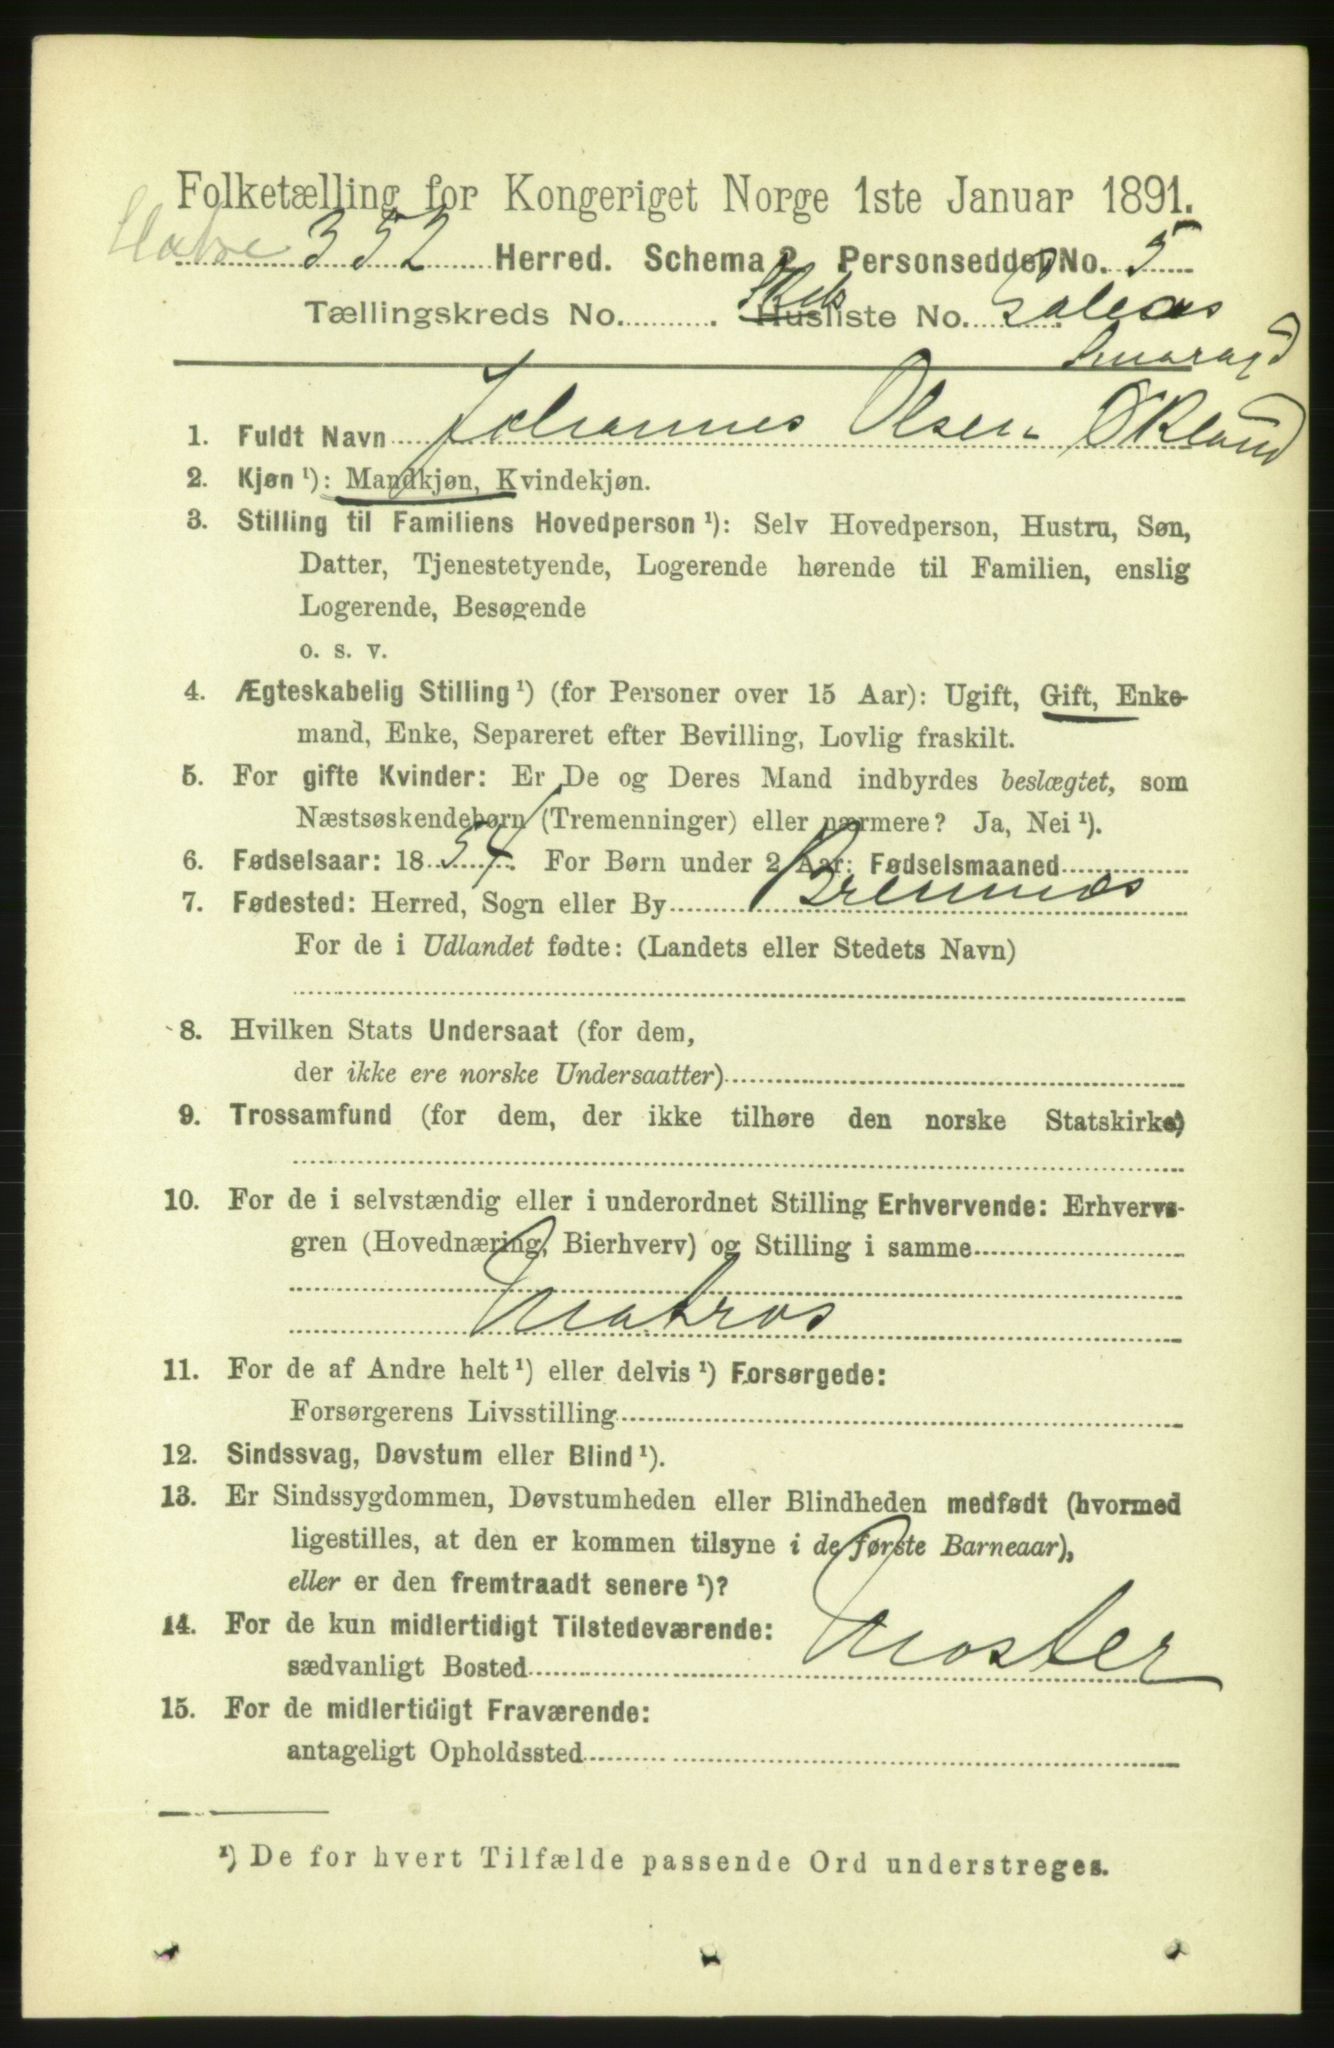 Folketælling for Kongeriget Norge 1ste Januar 1891.
352 Herred. Schema 2. Personseddel No. 5
Tællingskreds No. Skibsliste No. Galeas
Smaragd
1. Fuldt Navn Johannes Olsen Økland
2. Kjøn ¹): Mandkjøn, Kvindekjøn.
3. Stilling til Familiens Hovedperson ¹): Selv Hovedperson, Hustru, Søn,
Datter, Tjenestetyende, Logerende hørende til Familien, enslig
Logerende, Besøgende
o. s. v.
4. Ægteskabelig Stilling ¹) (for Personer over 15 Aar): Ugift, Gift, Enke-
mand, Enke, Separeret efter Bevilling, Lovlig fraskilt.
5. For gifte Kvinder: Er De og Deres Mand indbyrdes beslægtet, som
Næstsøskendebørn (Tremenninger) eller nærmere? Ja, Nei ¹).
6. Fødselsaar: 1854. For Børn under 2 Aar: Fødselsmaaned
7. Fødested: Herred, Sogn eller By Bremnes
For de i Udlandet fødte: (Landets eller Stedets Navn)
8. Hvilken Stats Undersaat (for dem,
der ikke ere norske Undersaatter)
9. Trossamfund (for dem, der ikke tilhøre den norske Statskirke)
10. For de i selvstændig eller i underordnet Stilling Erhvervende: Erhvervs-
gren (Hovednæring, Bierhverv) og Stilling i samme
Matros
11. For de af Andre helt ¹) eller delvis ¹) Forsørgede:
Forsørgerens Livsstilling
12. Sindssvag, Døvstum eller Blind ¹).
13. Er Sindssygdommen, Døvstumheden eller Blindheden medfødt (hvormed
ligestilles, at den er kommen tilsyne i de første Barneaar),
eller er den fremtraadt senere ¹)?
14. For de kun midlertidigt Tilstedeværende:
sædvanligt Bosted Moster
15. For de midlertidigt Fraværende:
antageligt Opholdssted
¹) De for hvert Tilfælde passende Ord understreges.